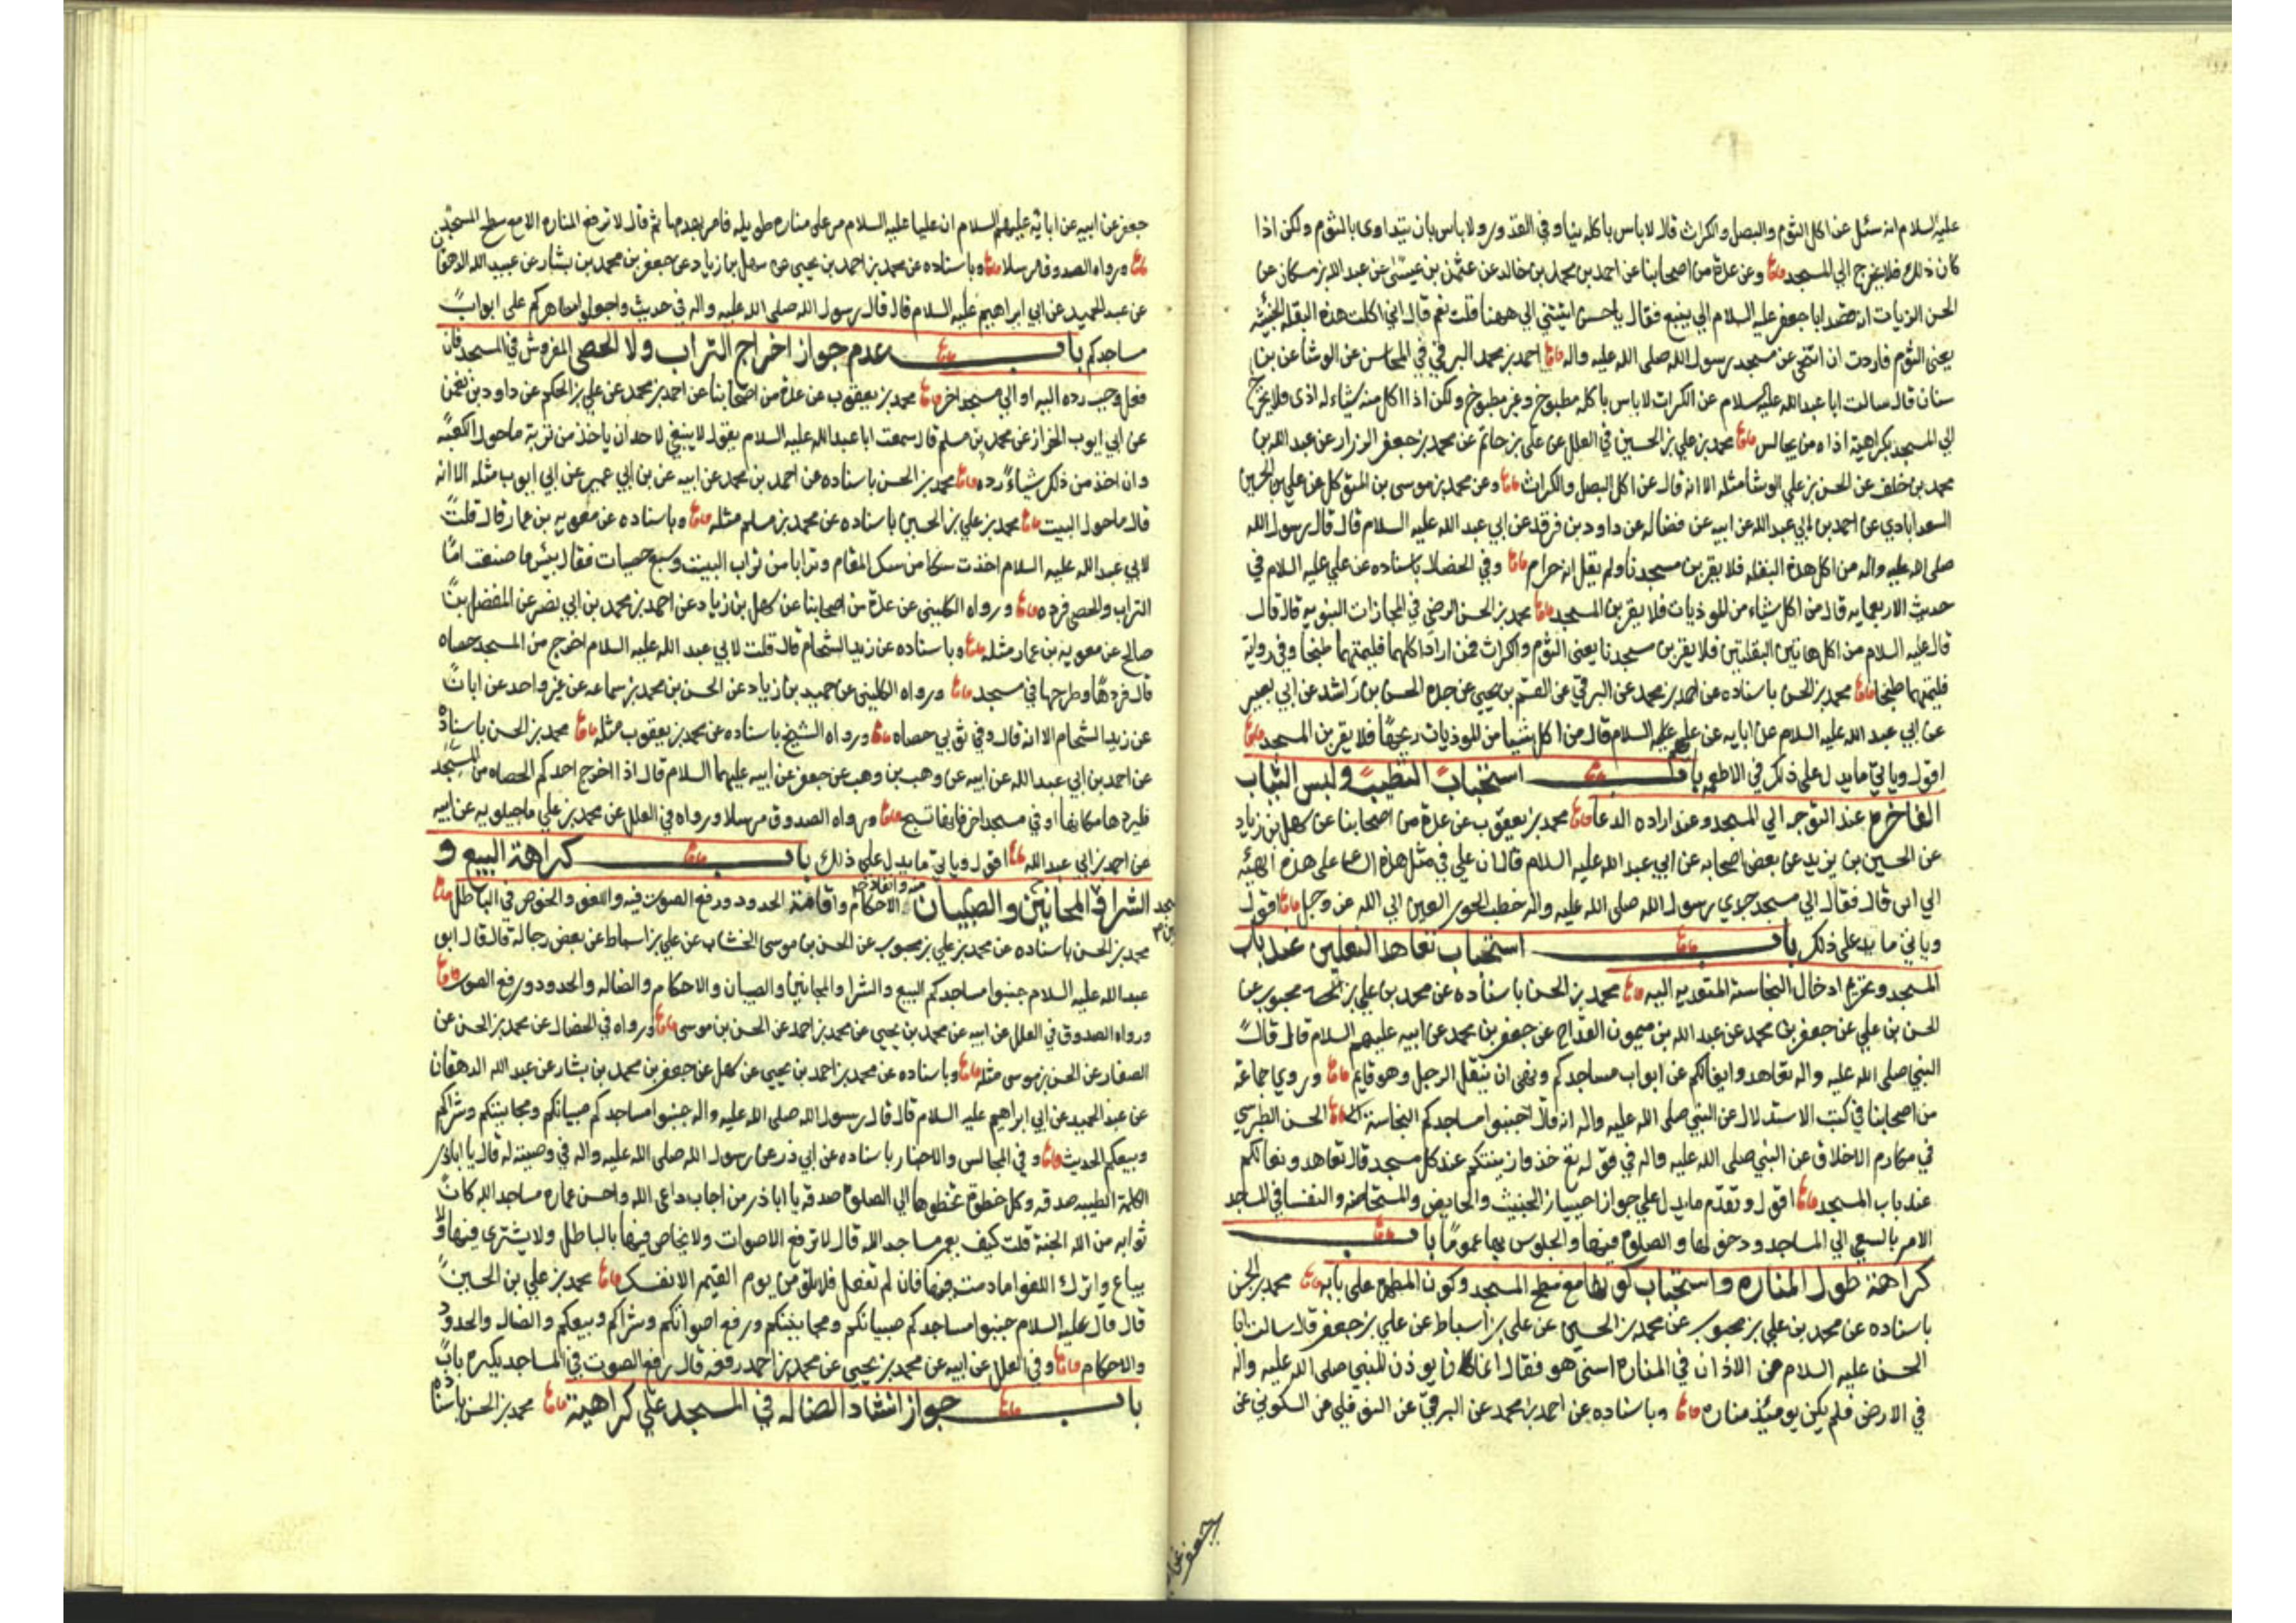 عليه السلام انه سئل عن اكل الثوم والبصل والكراث قال لا باس باكله نيا وفي القدور ولا باس بان يتداوى بالثوم ولكن اذا
كان ذلك فلا يخرج الي المسجد وعن عدة من اصحابنا عن احمد بن محمد بن خالد عن عثمن بن عيسى عن عبد الله بن مسكان عن
الحسن الزيات انه قصد ابا جعفر عليه السلام الي ينبع فقال يا حسن اتيتني الي ههنا قلت نعم قال اني اكلت هذه البقلة الخبيثة
يعني الثوم فاردت ان اتنحى عن مسجد رسول الله صلى الله عليه واله احمد بن محمد البرقي في المحاسن عن الوشا عن بن
سنان قال سالت ابا عبد الله عليه السلام عن الكراث لا باس باكله مطبوخ وغير مطبوخ ولكن اذا اكل منه شياء له اذى فلا يخرج
الي المسجد بكراهية اذاه من يجالس محمد بن علي بن الحسين في العلل عن علي بن حاتم عن محمد بن جعفر الرزاز عن عبد الله بن
محمد بن خلف عن الحسن بن علي الوشا مثله الا انه قال عن اكل البصل والكراث وعن محمد بن موسى بن المتوكل عن علي بن الحسين
السعدابادي عن احمد بن ابي عبد الله عن ابيه عن فضاله عن داود بن فرقد عن ابي عبد الله عليه السلام قال قال رسول الله
صلى الله عليه واله من اكل هذه البقله فلا يقربن مسجدنا ولم يقل انه حرام وفي الخصال باسناده عن علي عليه السلام في
حديث الاربعمايه قال من اكل شياء من الموذيات فلا يقربن المسجد محمد بن الحسن الرضي في المجازات النبويه قال قال
قال عليه السلام من اكل هاتين البقلتين فلا يقربن مسجدنا يعني الثوم والكراث فمن اراد اكلهما فليمتهما طبخا وفي رواية
فليمتهما طبخا محمد بن الحسن باسناده عن احمد بن محمد عن البرقي عن القسم بن يحيى عن جده الحسن بن راشد عن ابي بصير
عن ابي عبد الله عليه السلام عن ابايه عن علي عليهم السلام قال من اكل شيا من الموذيات ريحها فلا يقربن المسجد
اقول وياتي ما يدل على ذلك في الاطعمه باب استحباب التطيب ولبس الثياب
الفاخره عند التوجه الي المسجد وعند اراده الدعا محمد بن يعقوب عن عدة من اصحابنا عن سهل بن زياد
عن الحسين بن يزيد عن بعض اصحابه عن ابي عبد الله عليه السلام قال ان علي في مثل هذه على هذه الهيئه
الي اين قال فقال الي مسجد جدي رسول الله صلى الله عليه واله خطب الحور العين الي الله عز وجل اقول
وياتي ما يدل على ذلك باب استحباب تعاهد النعلين عند باب
المسجد وتحريم ادخال النجاسة المتعديه اليه محمد بن الحسن باسناده عن محمد بن علي بن محبوب عن
الحسن بن علي عن جعفر بن محمد عن عبد الله بن ميمون القداح عن جعفر بن محمد عن ابيه عليهم السلام قال قال
النبي صلى الله عليه واله تعاهدوا نعالكم عن ابواب مساجدكم ونهى ان يتنعل الرجل وهو قايم وروي جماعة
من اصحابنا في كتب الاستدلال عن النبي صلى الله عليه واله انه قال جنبوا مساجدكم النجاسة الحسن الطبرسي
في مكارم الاخلاق عن النبي صلى الله عليه واله في قوله تع خذوا زينتكم عند كل مسجد قال تعاهدو نعالكم
عند باب المسجد اقول وتقدم ما يدل علي جواز اجتياز الجنب والحايض والمستحاضه والنفسا في المساجد
الامر بالسعي الي المساجد ودخولها والصلوة فيها والجلوس بها عموما باب
كراهة طول المناره واستحباب كونها مع سطح المسجد وكون المطهر علي بابه محمد بن الحسن
باسناده عن محمد بن علي بن محبوب عن محمد بن الحسين عن علي بن اسباط عن علي بن جعفر قال سالت ابا
الحسن عليه السلام عن الاذان في المناره اسنة هو فقال انما كان يوذن للنبي صلى الله عليه واله
في الارض فلم يكن يومئذ مناره وباسناده عن احمد بن محمد عن البرقي عن النوفلي عن السكوني عن
جعفر عن
جعفر عن ابيه عن ابائه عليهم السلام ان عليا عليه السلام مر على مناره طويله فامر بهدمها ثم قال لا ترفع المناره الا مع سطح المسجد
ورواه الصدوق مرسلا وباسناده عن محمد بن احمد بن يحيى عن سهل بن زياد عن جعفر بن محمد بن بشار عن عبيد الله الدهقان
عن عبد الحميد عن ابي ابراهيم عليه السلام قال قال رسول الله صلى الله عليه واله في حديث واجعلوا مطاهركم على ابواب
مساجدكم باب عدم جواز اخراج التراب ولا الحصى المفروش في المسجد فان
فعل وجب رده اليه او الي مسجد اخر محمد بن يعقوب عن عدة من اصحابنا عن احمد بن محمد عن علي بن الحكم عن داود بن نعمن
عن ابي ايوب الخزاز عن محمد بن مسلم قال سمعت ابا عبد الله عليه السلام يقول لا ينبغي لاحد ان ياخذ من تربة ماحول الكعبه
وان اخذ من ذلك شياء رده محمد بن الحسن باسناده عن احمد بن محمد عن ابيه عن بن ابي عمير عن ابي ايوب مثله الا انه
قال ماحول البيت محمد بن علي بن الحسين باسناده عن محمد بن مسلم مثله وباسناده عن معويه بن عمار قال قلت
لابي عبد الله عليه السلام اخذت سكا من سك المقام وترابا من تراب البيت وسبع حصيات فقال بئس ما صنعت اما
التراب والحصى فرده ورواه الكليني عن عدة من اصحابنا عن سهل بن زياد عن احمد بن محمد بن ابي نصر عن المفضل بن
صالح عن معويه بن عمار مثله وباسناده عن زيد الشحام قال قلت لابي عبد الله عليه السلام اخرج من المسجد حصاه
قال فردها او طرحها في مسجد ورواه الكليني عن حميد بن زياد عن الحسن بن محمد بن سماعه عن غير واحد عن ابان
عن زيد الشحام الا انه قال وفي ثوبي حصاه ورواه الشيخ باسناده عن محمد بن يعقوب مثله محمد بن الحسن باسناده
عن احمد بن ابي عبد الله عن ابيه عن وهب بن وهب عن جعفر عن ابيه عليهما السلام قال اذا اخرج احدكم الحصاه من المسجد
فليردها مكانها او في مسجد اخر فانها تسبح ورواه الصدوق مرسلا ورواه في العلل عن محمد بن علي ماجيلويه عن ابيه
عن احمد بن ابي عبد الله اقول وياتي ما يدل على ذلك باب كراهة البيع و
الشرا والمجانين والصبيان منه وانفاذ الاحكام واقامة الحدود ورفع الصوت فيه واللغو والخوض في الباطل
محمد بن الحسن باسناده عن محمد بن علي بن محبوب عن الحسن بن موسى الخشاب عن علي بن اسباط عن بعض رجاله قال قال ابو
عبد الله عليه السلام جنبوا مساجدكم البيع والشرا والمجانين والصبيان والاحكام والضاله والحدود ورفع الصوت
ورواه الصدوق في العلل عن ابيه عن محمد بن يحيى عن محمد بن احمد عن الحسن بن موسى ورواه في الخصال عن محمد بن الحسن عن
الصفار عن الحسن بن موسى مثله وباسناده عن محمد بن احمد بن يحيى عن سهل عن جعفر بن محمد بن بشار عن عبد الله الدهقان
عن عبد الحميد عن ابي ابراهيم عليه السلام قال قال رسول الله صلى الله عليه واله جنبوا مساجدكم صبيانكم ومجانينكم وشراكم
وبيعكم الحديث وفي المجالس والاخبار باسناده عن ابي ذر عن رسول الله صلى الله عليه واله في وصيته له قال يا اباذر
الكلمة الطيبه صدقه وكل خطوة تخطوها الي الصلوة صدقه يا اباذر من اجاب داعي الله واحسن عماره مساجد الله كان
ثوابه من الله الجنة قلت كيف يعمر مساجد الله قال لا ترفع الاصوات ولا يخاض فيها بالباطل ولا يشترى فيها ولا
يباع واترك اللغو ما دمت فيها فان لم تفعل فلا تلومن يوم القيمه الا نفسك محمد بن علي بن الحسين
قال قال عليه السلام جنبوا مساجدكم صبيانكم ومجانينكم ورفع اصواتكم وشراكم وبيعكم والضاله والحدود
والاحكام وفي العلل عن ابيه عن محمد بن يحيى عن محمد بن احمد رفعه قال رفع الصوت في المساجد يكره باب
باب جواز انشاد الضاله في المسجد على كراهية محمد بن الحسن باسناده